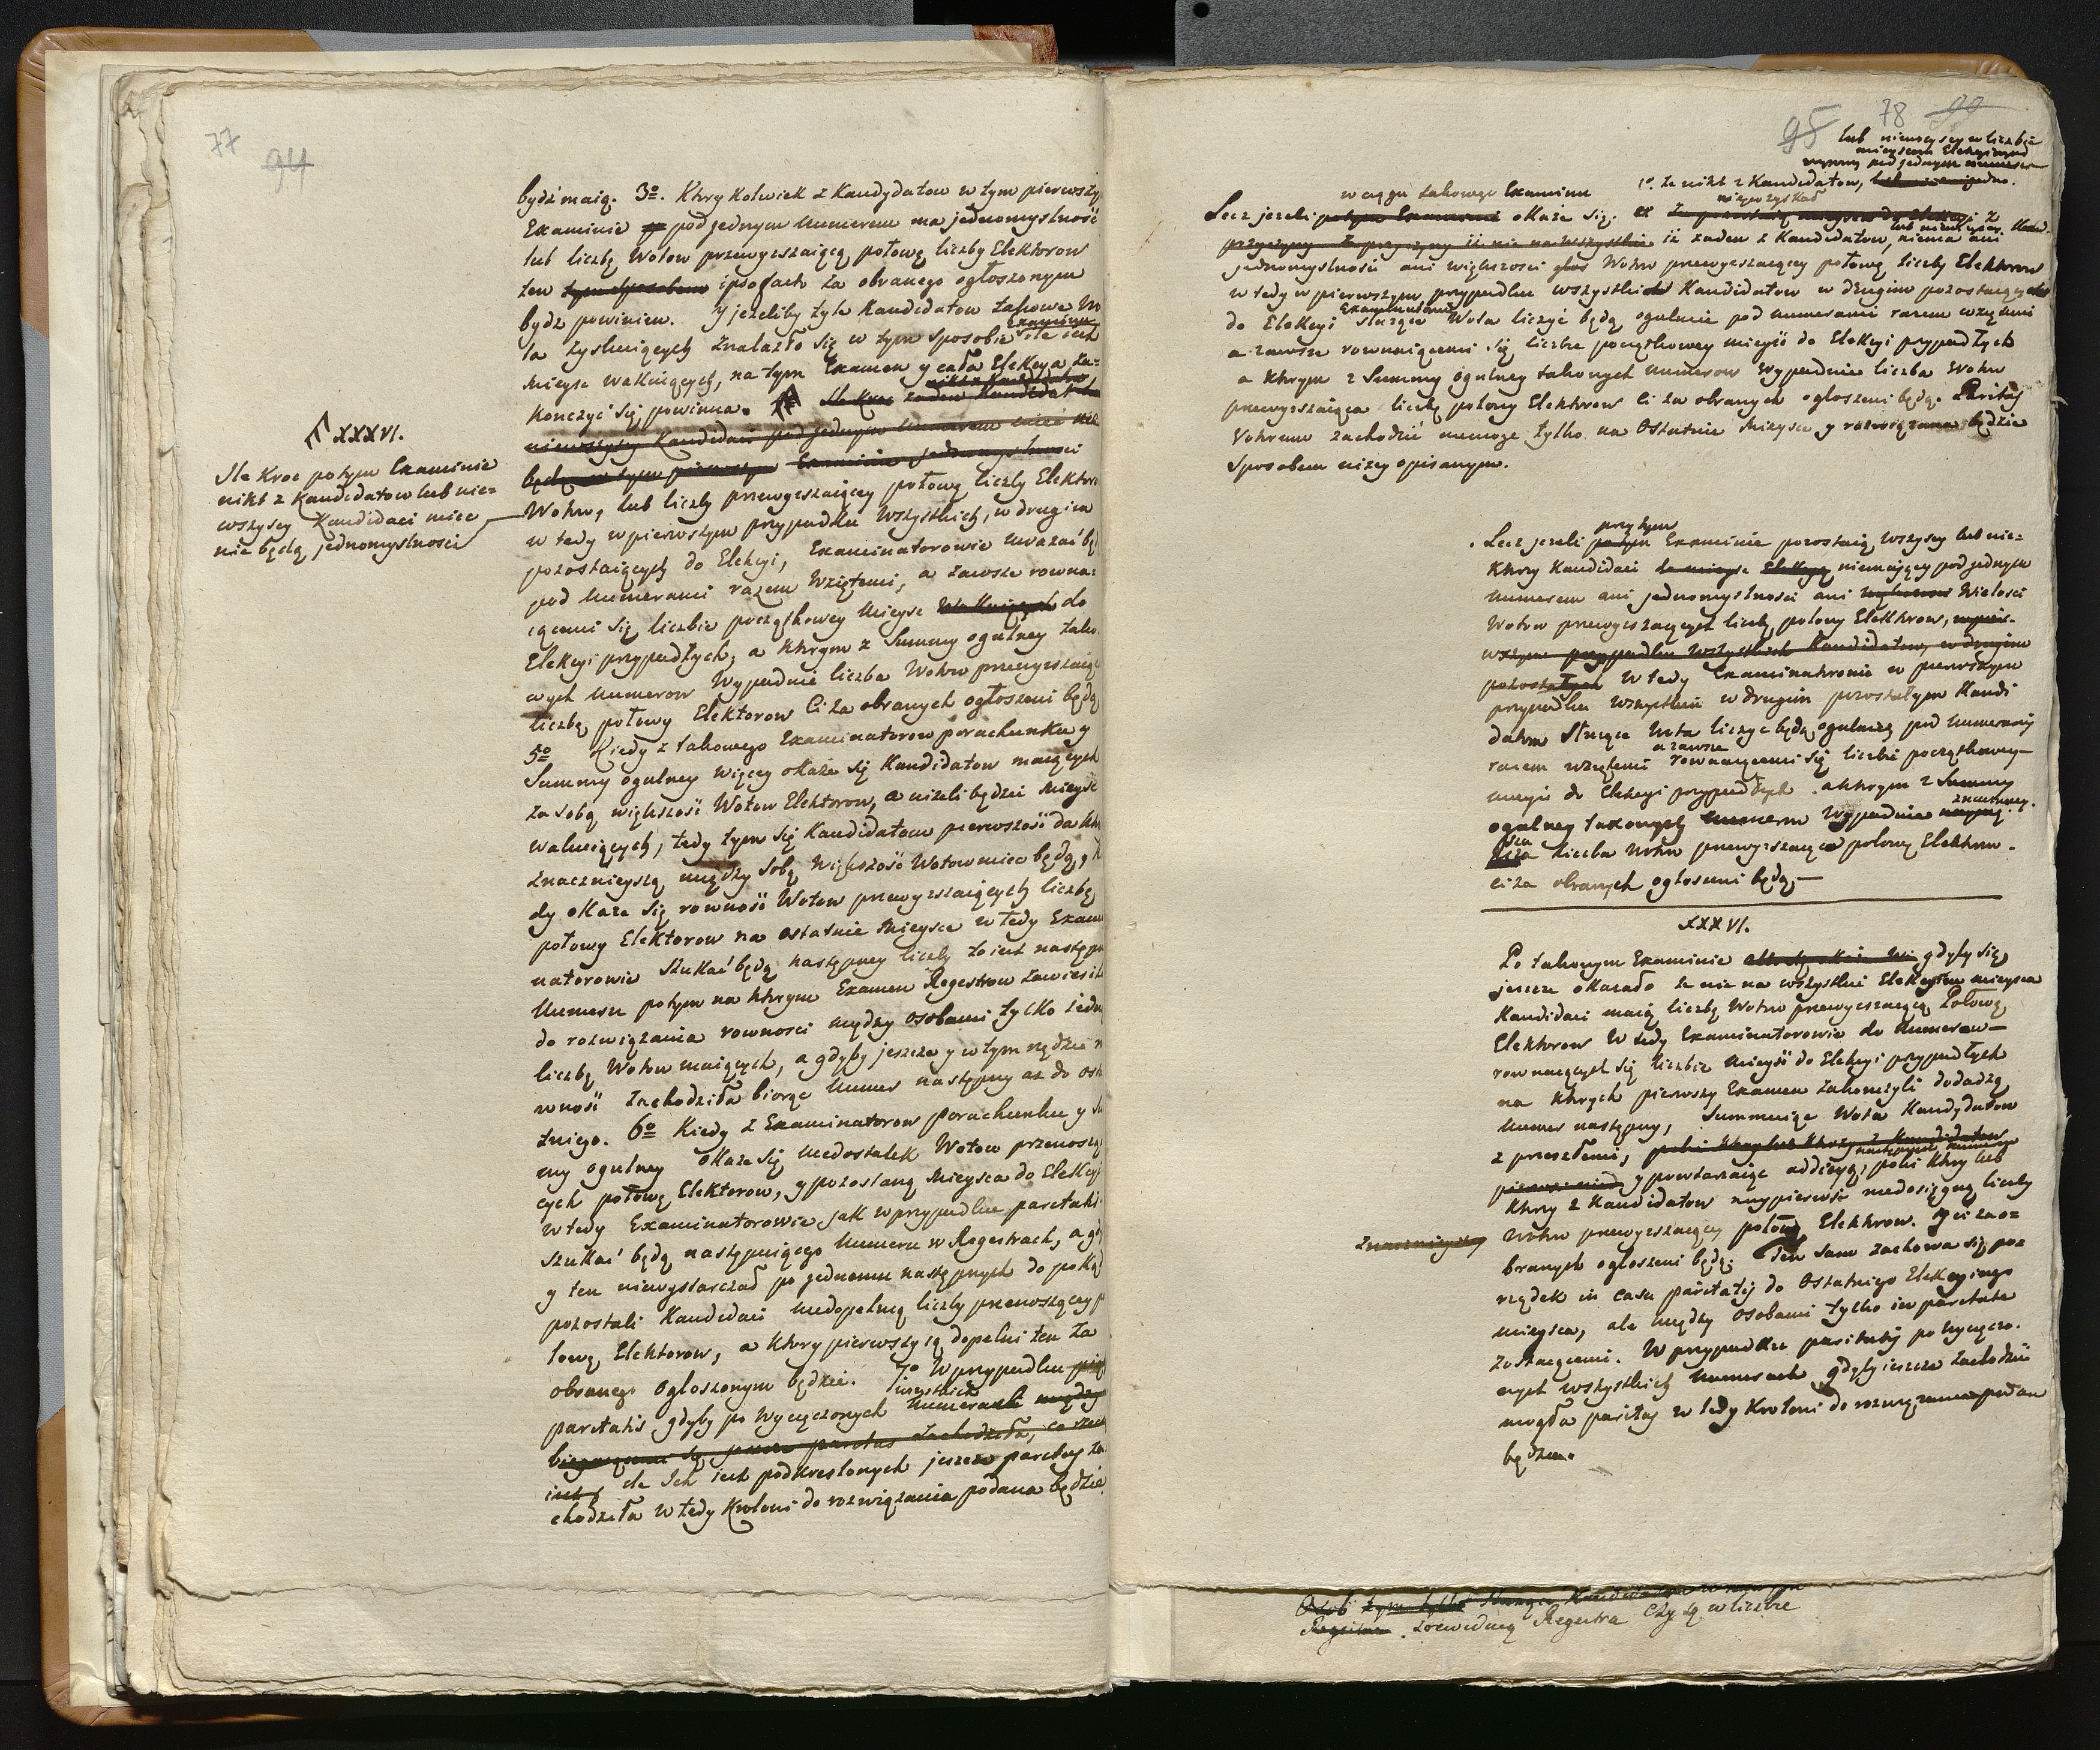 77
94
XXXVI.
Ile kroc potym Examinie
nikt z Kandidatow lub nie=
wszyscy Kandidaci miec
nie będą jednomyslnosci
bydź maią. 3o. Ktory kolwiek z Kandydatow w tym pierwszy
Examinie pod jednym Numerem ma jednomyslność
lub liczbę Wotow przewyzszaiącą połowę liczby Elektorow
ten tym sposobem ipso facto za obranego ogłoszonym
bydz powinien. Y jeżeliby tyle Kandidatow takowe Wo
ta zyskuiących znalazło się w tym sposobie ile iest
Mieysc wakuiących, na tym Examen y cała Elekcya za=
kończyć się powinna. Ile kroc zaden Kandidat
niewszyscy Kandidaci pod jednym Numerem miec nie
będą w tym pierwszym Examinie jednomyslnosci
Wotow, lub liczby przewyzszaiącey połowę liczby Elektor
w tedy w pierwszym przypadku Wszystkich, w drugim
pozostaiących do Elekcyi, Examinatorowie uważać bę
pod Numerami razem wziętemi, a zawsze rowna=
iącemi się liczbie początkowey Mieysc Wakuiących do
Elekcyi przypadłych, a ktorym z Summy ogulney tako.
wych Numerow Wypadnie liczba Wotow przewyzszaiąc
liczbę połowy Elektorow Ci za obranych ogłoszeni będą
5o Kiedy z takowego Examinatorow porachunku y
Summy ogulney więcey okaże się Kandidatow maiących
za sobą większość Wotow Elektorow, a niżeli będzie Mieysc
wakuiących, tedy tym się Kandidatom pierwszość da kto
znacznieyszą między sobą większość Wotow miec będą,
dy okaże się rownosć Wotow przewyzszaiących liczbę
połowy Elektorow na ostatnie Mieysce w tedy Exam
natorowie szukać będą następney liczby to iest następn
Numeru potym na ktorym Examen Regestrow zawiesili
do rozwiązania rownosci między osobami tylko iedn
liczbę Wotow maiących, a gdyby jeszcze y w tym rzędzie r
wnosć zachodziła biorąc Numer następny az do osta
tniego. 6o Kiedy z Examinatorow porachunku y Su
my ogulney okaże się niedostatek Wotow przenoszą
cych połowę Elektorow, y pozostaną Mieysca do Elekcyi
w tedy Examinatorowie jak w przypadku paritatis
szukać będą następuiącego Numeru w Regestrach, a gdy
y ten niewystarczał po jednemu następnych do poką
pozostali Kandidaci niedopełnią liczby przenoszącey p
łowę Elektorow, a ktory pierwszy ią dopełni ten za
obranego ogłoszonym będzie. 7o W przypadku
paritatis gdyby po wycięczonych wszystkich Numerach między
jeszcze paritas zachodziła,
ile Ich iest podkreslonych jeszcze paritas za
chodziła w tedy Krolowi do rozwiązania podana będzie.
95 78 90
lub niewszyscy w liczbie
mieyscom Elekcyinym
pod jednym numerem
w ciągu takowego Examinu 1o. że nikt z Kandidatow,
Lecz jezeli potym Examinie okaże się.
iż zaden z Kandidatow, niema ani
jednomyslności ani większości głos Wotow przewyzszaiącey połowę liczby Elektorow
w tedy w pierwszym przypadku wszystkich Kandidatow w drugim pozostaiących
do Elekcyi Examinatorowie służące Wota liczyć będą ogulnie pod numerami razem wziętemi
a zawsze rownaiącemi się liczbie początkowey mieysc do Elekcyi przypadłych
a ktorym z Summy ogulney takowych numerow Wypadnie liczba Wotow
przewyzszaiąca liczbę połowy Elektorow Ci za obranych ogłoszeni będą. Paritas
Votorum zachodzić niemoże tylko na Ostatnie Mieysce y rozwiązana będzie
Sposobem nizey opisanym.
przytym
Lecz jezeli potym Examinie pozostaią wszyscy lub nie=
ktory Kandidaci Elekcyą niemaiący pod jednym
numerem ani jednomyslności ani większosci Wielości
Wotow przewyzszaiących liczbę połowy Elektorow, w pier=
wszym przypadku wszystkich Kandidatow, w drugim
pozostałych w tedy Examinatorowie w pierwszym
przypadku wszystkim w drugim pozostałym Kandi
datom służące Wota liczyć będą ogulnie pod numerami
a zawsze
razem wziętemi rownaiącemi się liczbie początkowey
mieysc do Elekcyi przypadłych. a ktorym z Summy
ogulney takowych Numerow Wypadnie znaczniey=
sza liczba Wotow przewyzszaiąca połowę Elektorow.
ci za obranych ogłoszeni będą.
XXXVI.
Po takowym Examinie gdyby się
jeszcze okazało że nie na wszystkie Elekcyine mieysca
Kandidaci maią liczbę Wotow przewyzszaiącą Połowę
Elektorow W tedy Examinatorowie do Numerow
rownaiących się liczbie Mieysc do Elekcyi przypadłych
na ktorych pierwszy Examen zakończyli dodadzą
Numer następny, Summuiąc Wota Kandydatow
z przeszłemi,
y powtarzaiąc addicyą, poki ktory lub
ktorzy z Kandidatow naypierwsi niedosięgną liczby
Znacznieyszey Wotow przewyzszaiącey połowę Elektorow. y ci za o=
branych ogłoszeni będą. Ten sam zachowa się po=
rządek in casu paritatis do Ostatniego Elekcyinego
mieysca, ale między osobami tylko in paritate
zostaiącemi. W przypadku paritatis po wycięczo=
nych wszystkich Numerach gdyby ieszcze zachodzić
mogła paritas w tedy Krolowi do rozwiązania podana
będzie.
Osob tym tylko służące Kandidatom
Regestra. zrewiduią Regestra czy są w liczbie